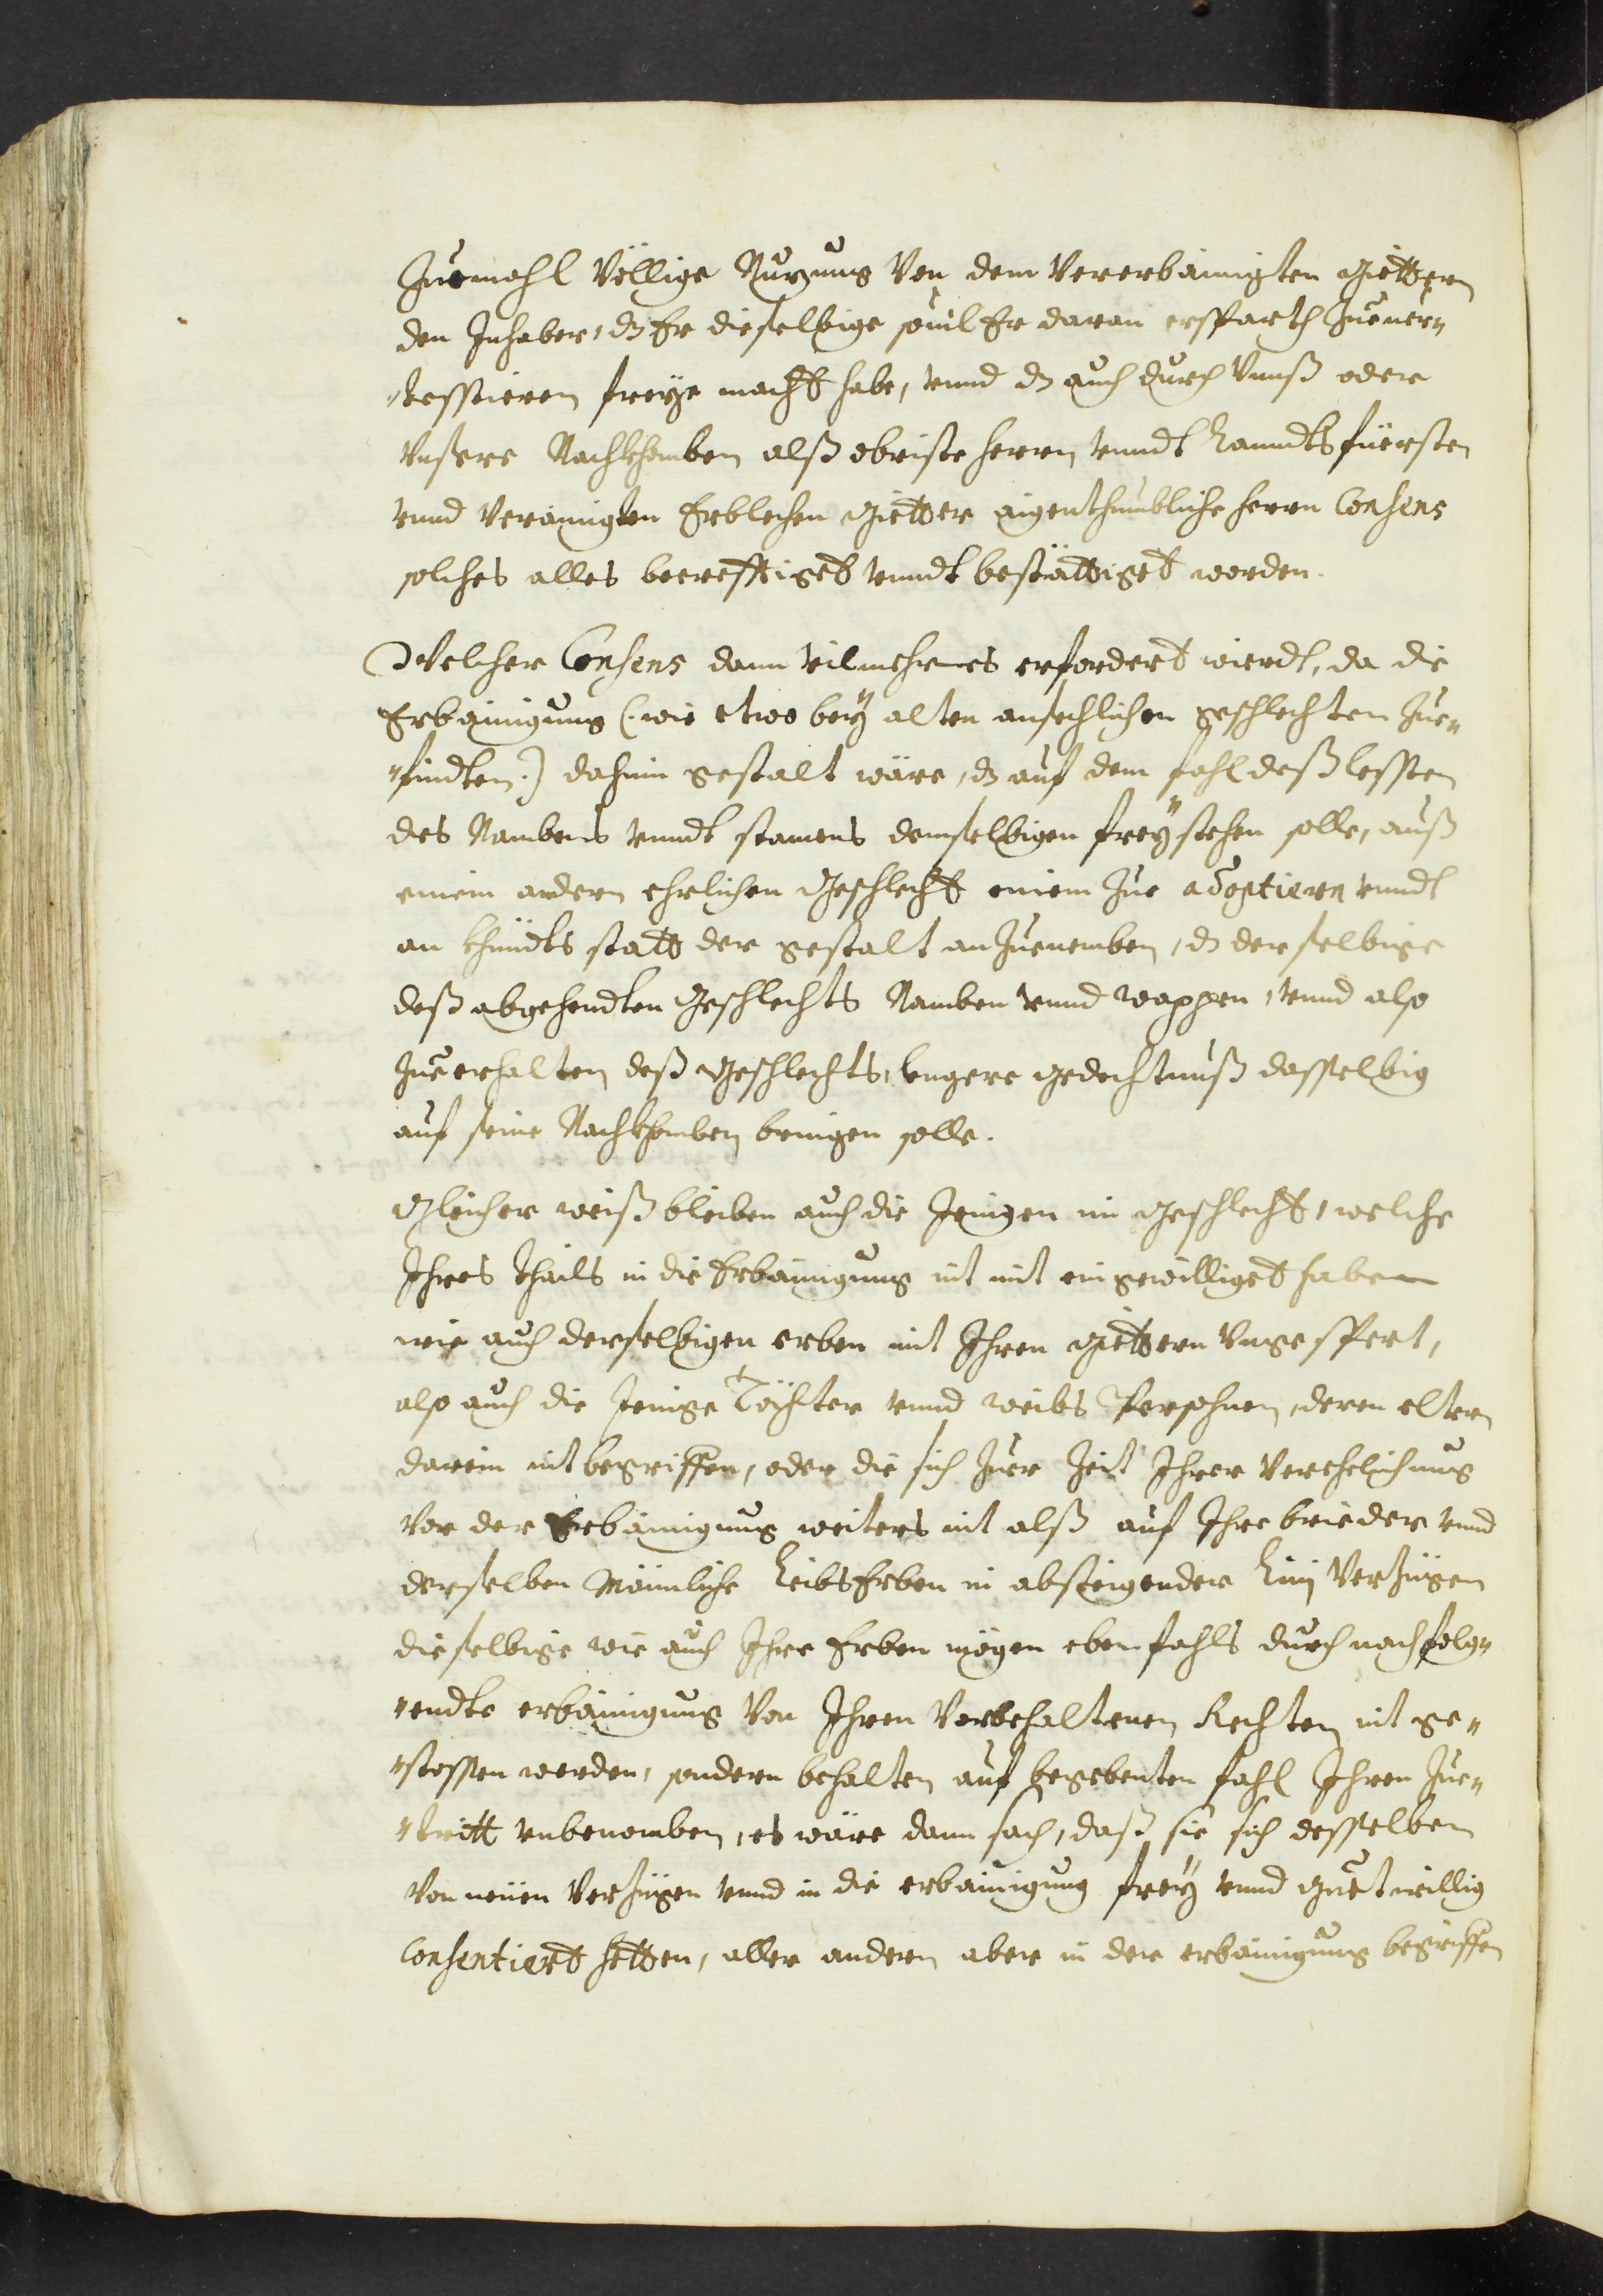 Zuemahl völlige Nuzung von dem vererbainigten Güettern
den Inhaber, dz Er dieselbige souil Er daran ersparth zueuer„
„testieren freye macht habe, vnnd dz auch durch Vnnß oder
vnsere Nachkhomben alß obriste herrn vnndt Lanndtsfüersten
vnnd verainigten Erblehen Güetter aigenthumbliche herrn Consens
solches alles becrefftiget vnndt bestättiget worden.
Welcher Consens dann vilmehrers erfordert wierdt, da die
Erbainigung (: wie etwo bey alten ansechlichen geschlechten zue„
„findten :) dahin gestalt wäre, dz auf dem fahl deß lessten
des Nambens vnndt stamens demselbigen frey stehen solle, auß
einem andern ehrlichen Geschlecht einem zue adoptiern vnndt
an khindts statt der gestalt anzuenemben, dz derselbige
deß abgehendten Geschlechts Namben vnnd wappen, vnnd also
zue erhalten deß Geschlechts, lengere gedechtnuß dasselbig
auf seine Nachkhomben bringen solle.
Gleicher weiß bleiben auch die Jenigen im Geschlecht, welche
Ihres thails in die Erbainigung nit mit eingewilliget haben
wie auch derselbigen erben mit Ihren Güettern vngespert,
also auch die Jenige Töchter vnnd weibs Persohnen, deren eltern
darein nit begriffen, oder die sich zuer Zeit Ihrer verehelichung
vor der Erbainigung weiters nit alß auf Ihre brieder vnnd
derselben Männliche Leibs Erben in absteigender Linj verzigen
dieselbige wie auch Ihre Erben mögen ebenfahls durch nachfolg„
„endte erbainigung von Ihren vorbehaltenen Rechten nit ge„
„stossen werden, sondern behalten auf begebenten fahl Ihren zue„
„tritt vnbenomben, es wäre dann sach, daß sie sich desselben
von neüen verzigen vnnd in die erbainigung frey vnnd guetwillig
Consentiert hetten, aller andern aber in der erbainigung begriffen